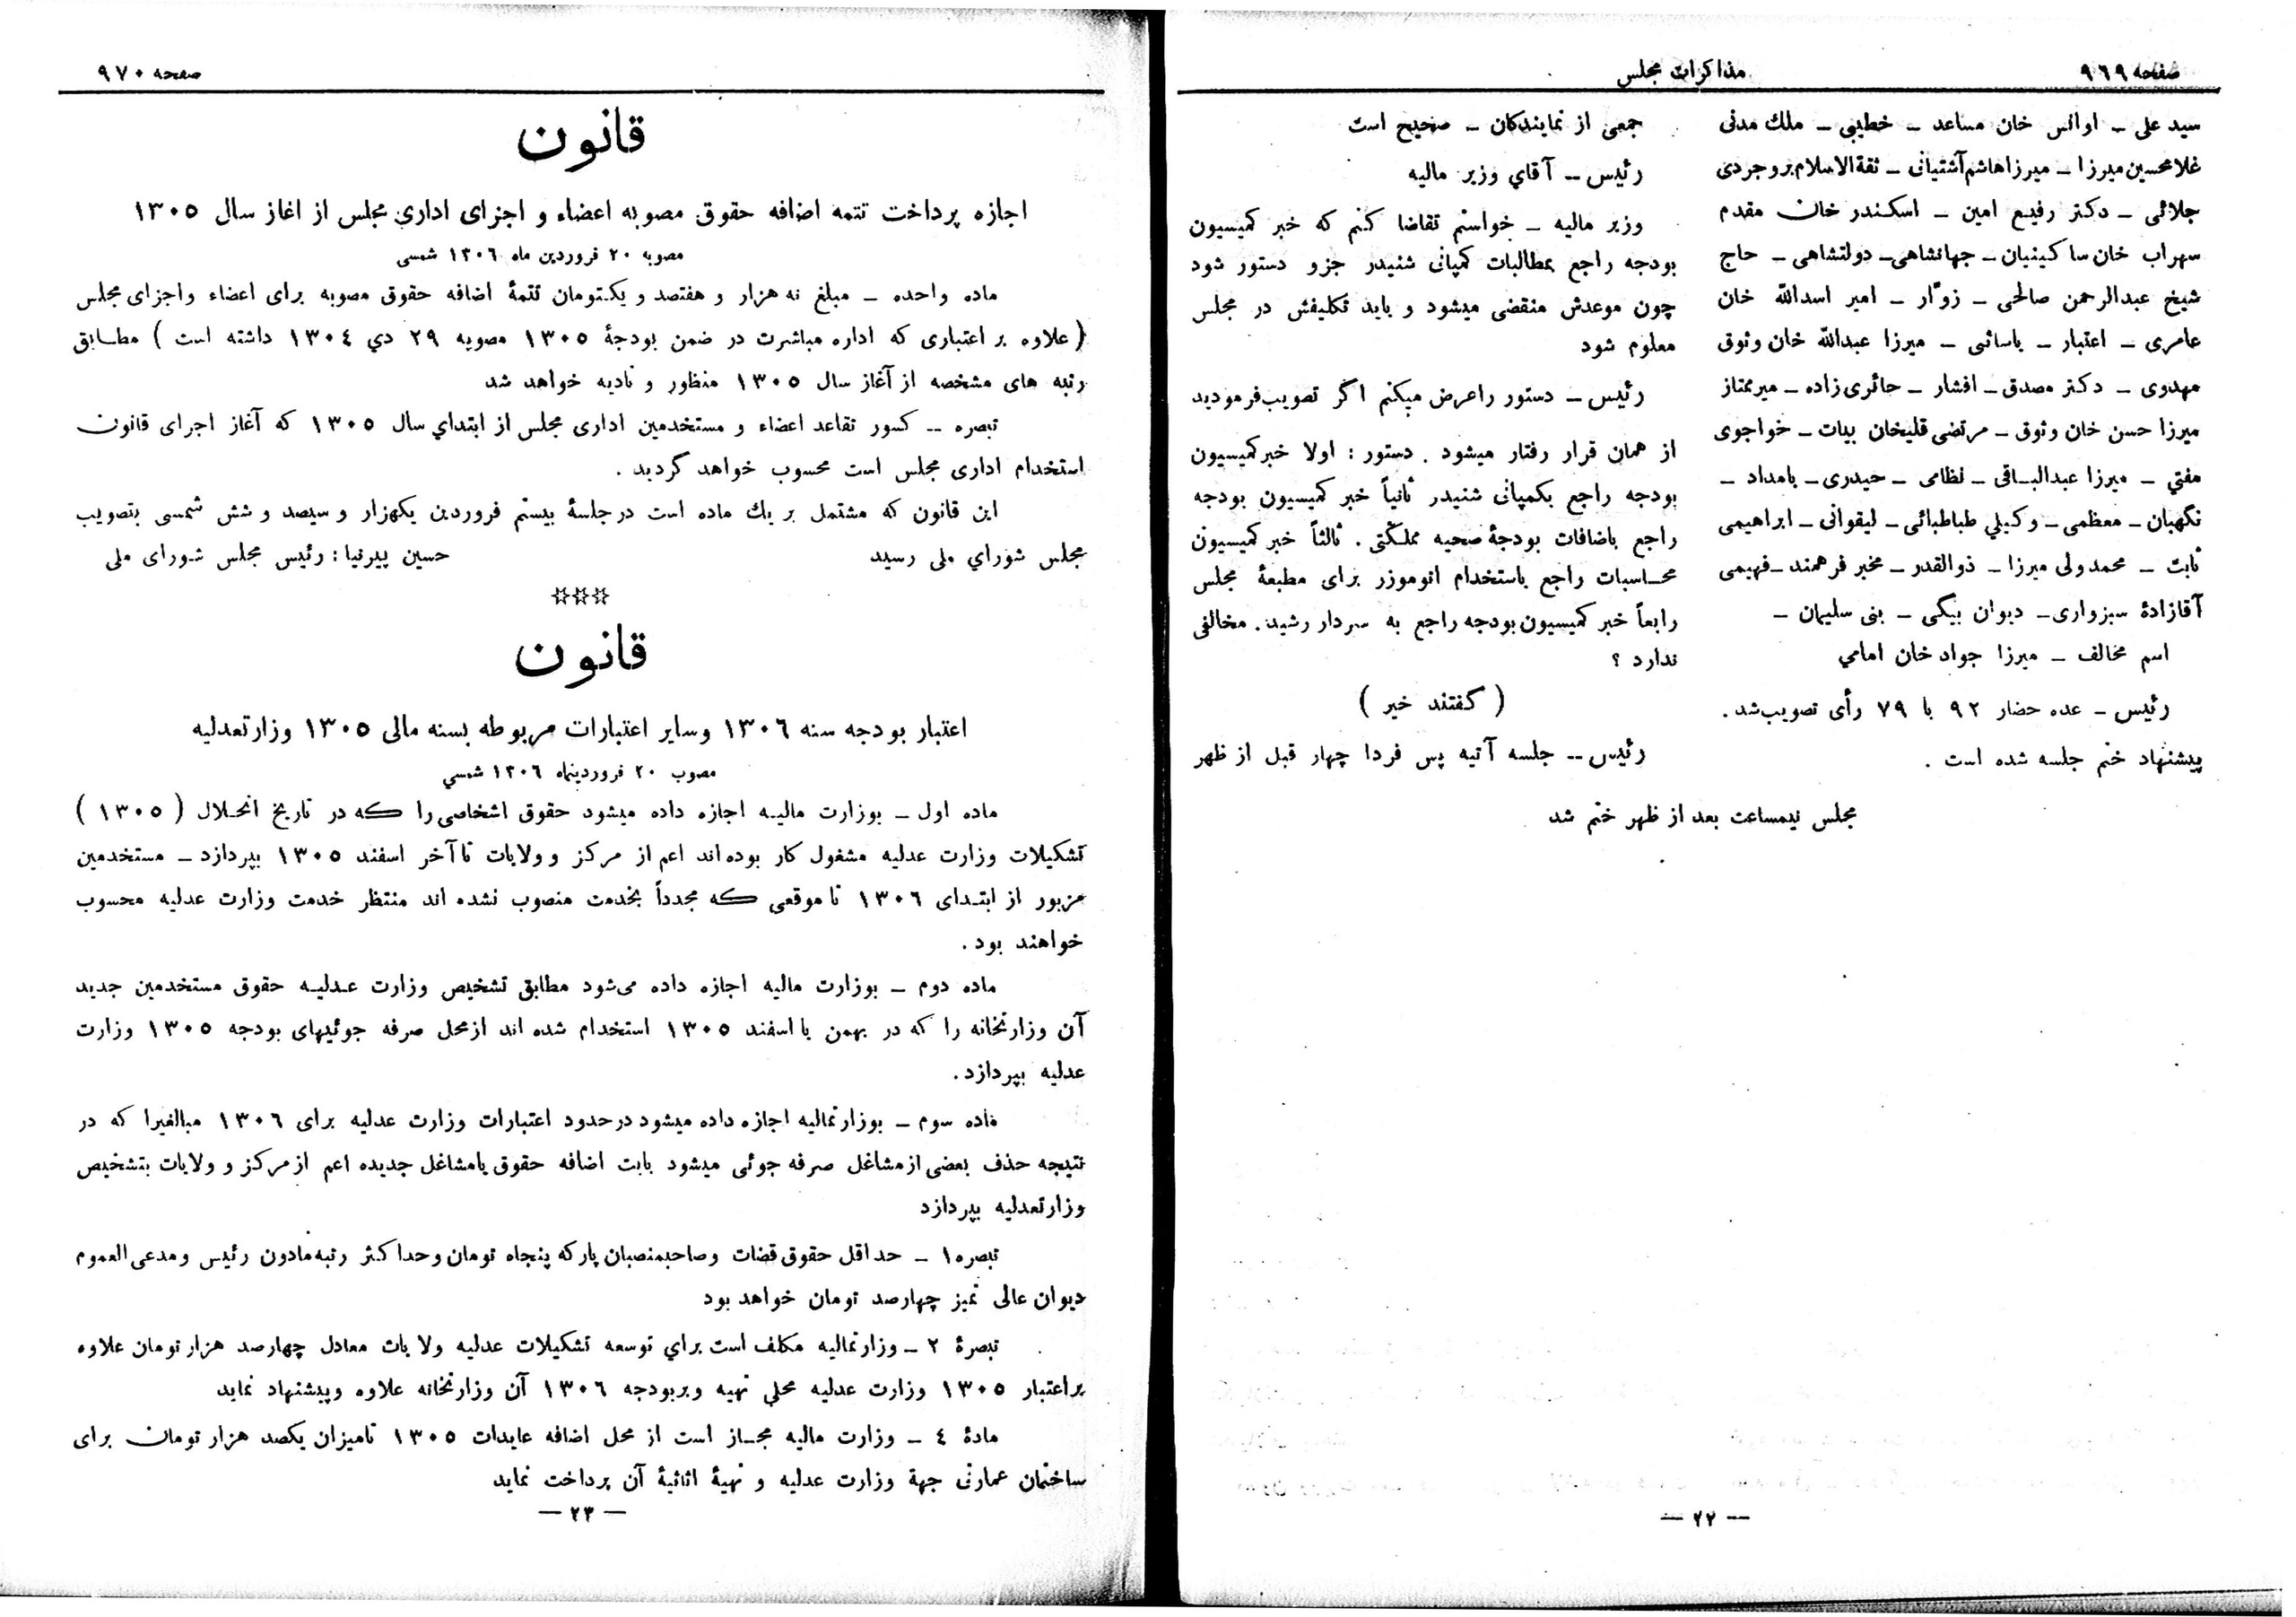 صفحه ۹۶۹
مذاکرات مجلس
سید علی ـ اوانس خان مساعد ـ خطیبی ـ ملك مدنی
غلامحسین میرزا ـ میرزا هاشم آشتیانی ـ ثقةالاسلام بروجردی
جلائی ـ دکتر رفیع امین ـ اسکندر خان مقدم
سهراب خان ساکینیان ـ جهانشاهی ـ دولتشاهی ـ حاج
شیخ عبدالرحمن صالحی ـ زوّار ـ امیر اسدالله خان
عامری ـ اعتبار ـ یاسائی ـ میرزا عبدالله خان وثوق
مهدوی ـ دکتر مصدق ـ افشار ـ حائری زاده ـ میرممتاز
میرزا حسن خان وثوق ـ مرتضی قلیخان بیات ـ خواجوی
مفتي ـ میرزا عبدالباقی ـ نظامی ـ حیدری ـ بامداد ـ
نگهبان ـ معظمی ـ وکیلي طباطبائی ـ لیقوانی ـ ابراهیمی
ثابت ـ محمد ولی میرزا ـ ذوالقدر ـ مخبر فرهمند ـ فهیمی
آقازادهٔ سبزواری ـ دیوان بیگی ـ بنی سلیمان ـ
اسم مخالف ـ میرزا جواد خان امامي
رئیس ـ عده حضار ۹۲ با ۷۹ رأی تصویب شد.
پیشنهاد ختم جلسه شده است .
جمعی از نمایندگان ـ صحیح است
رئیس ـ آقاي وزیر مالیه
وزیر مالیه ـ خواستم تقاضا کنم که خبر کمیسیون
بودجه راجع بمطالبات کمپانی شنیدر جزو دستور شود
چون موعدش منقضی میشود و باید تکلیفش در مجلس
معلوم شود
رئیس ـ دستور را عرض میکنم اگر تصویب فرمودید
از همان قرار رفتار میشود . دستور : اولا خبر کمیسیون
بودجه راجع بکمپانی شنیدر ثانیاً خبر کمیسیون بودجه
راجع باضافات بودجهٔ صحیه مملکتی . ثالثاً خبر کمیسیون
محاسبات راجع باستخدام اتوموزر برای مطبعهٔ مجلس
رابعاً خبر کمیسیون بودجه راجع به سردار رشید . مخالفی
ندارد ؟
( گفتند خیر )
رئیس -- جلسه آتیه پس فردا چهار قبل از ظهر
مجلس نیمساعت بعد از ظهر ختم شد
— ۲۲ —
صفحه ۹۷۰
قانون
اجازه پرداخت تتمه اضافه حقوق مصوبه اعضاء و اجزای اداری مجلس از اغاز سال ۱۳۰۵
مصوبه ۲۰ فروردین ماه ۱۳۰٦ شمسی
ماده واحده ـ مبلغ نه هزار و هفتصد و یکتومان تتمهٔ اضافه حقوق مصوبه برای اعضاء و اجزای مجلس
( علاوه بر اعتباری که اداره مباشرت در ضمن بودجهٔ ۱۳۰۵ مصوبه ۲۹ دي ۱۳۰٤ داشته است ) مطابق
رتبه های مشخصه از آغاز سال ۱۳۰۵ منظور و تادیه خواهد شد
تبصره -- کسور تقاعد اعضاء و مستخدمین اداری مجلس از ابتداي سال ۱۳۰۵ که آغاز اجرای قانون
استخدام اداری مجلس است محسوب خواهد گردید .
این قانون که مشتمل بر یك ماده است در جلسهٔ بیستم فروردین یکهزار و سیصد و شش شمسی بتصویب
مجلس شوراي ملی رسید حسین پیرنیا : رئیس مجلس شورای ملی
***
قانون
اعتبار بودجه سنه ۱۳۰٦ وسایر اعتبارات مربوطه بسنه مالی ۱۳۰۵ وزارتعدلیه
مصوب ۲۰ فروردینماه ۱۳۰٦ شمسي
ماده اول ـ بوزارت مالیه اجازه داده میشود حقوق اشخاصی را که در تاریخ انحلال ( ۱۳۰۵ )
تشکیلات وزارت عدلیه مشغول کار بوده اند اعم از مرکز و ولایات تا آخر اسفند ۱۳۰۵ بپردازد ـ مستخدمین
مزبور از ابتدای ۱۳۰٦ تا موقعی که مجدداً بخدمت منصوب نشده اند منتظر خدمت وزارت عدلیه محسوب
خواهند بود .
ماده دوم ـ بوزارت مالیه اجازه داده می‌شود مطابق تشخیص وزارت عدلیه حقوق مستخدمین جدید
آن وزارتخانه را که در بهمن یا اسفند ۱۳۰۵ استخدام شده اند از محل صرفه جوئیهای بودجه ۱۳۰۵ وزارت
عدلیه بپردازد .
ماده سوم ـ بوزارتمالیه اجازه داده میشود در حدود اعتبارات وزارت عدلیه برای ۱۳۰٦ مبالغیرا که در
نتیجه حذف بعضی از مشاغل صرفه جوئی میشود بابت اضافه حقوق یا مشاغل جدیده اعم از مرکز و ولایات بتشخیص
وزارتعدلیه بپردازد
تبصره۱ ـ حداقل حقوق قضات و صاحبمنصبان پارکه پنجاه تومان و حداکثر رتبه مادون رئیس و مدعی العموم
دیوان عالی تمیز چهارصد تومان خواهد بود
تبصرهٔ ۲ ـ وزارتمالیه مکلف است براي توسعه تشکیلات عدلیه ولایات معادل چهارصد هزار تومان علاوه
بر اعتبار ۱۳۰۵ وزارت عدلیه محلی تهیه و بر بودجه ۱۳۰٦ آن وزارتخانه علاوه و پیشنهاد نماید
مادهٔ ٤ ـ وزارت مالیه مجاز است از محل اضافه عایدات ۱۳۰۵ تامیزان یکصد هزار تومان برای
ساختمان عمارتی جهة وزارت عدلیه و تهیهٔ اثاثیهٔ آن پرداخت نماید
— ۲۳ —